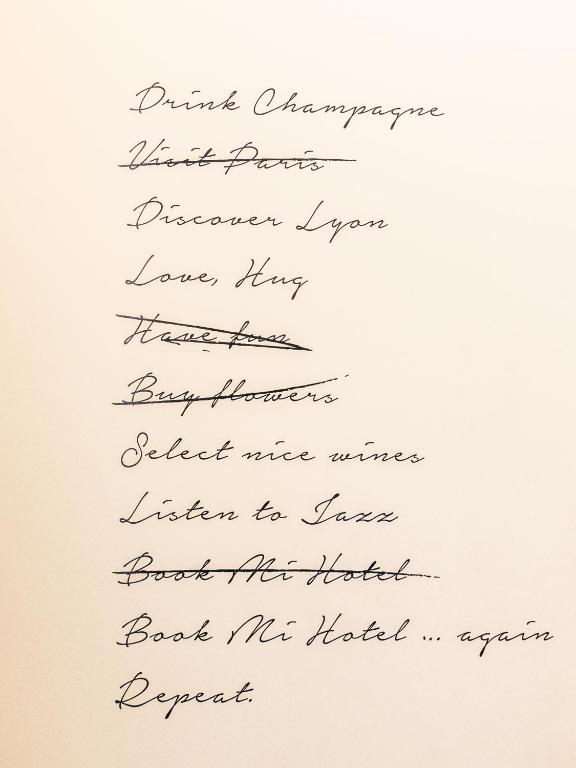 Drink Champagne
Visit Paris
Discover Lyon
Love, Hug
Have fun
Buy flowers
Select nice wines
Listen to Jazz
Book Mi Hotel
Book Mi Hotel ... again
Repeat.